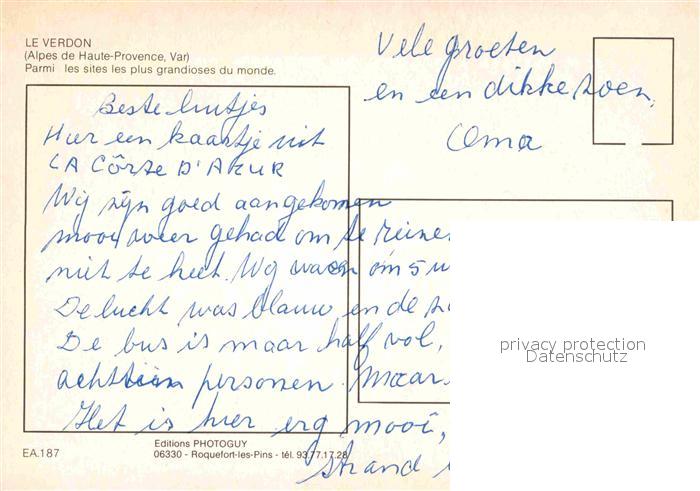 LE VERDON
(Alpes de Haute-Provence, Var)
Parmi les sites les plus grandioses du monde.
Beste luitjes
Hier een kaartje uit
LA CÔRZE D'AZUR
Wij zijn goed aangekomen
mooi weer gehad om te reizen
niet te heet. Wij waren om 5 u
De lucht was blauw en de zo
De bus is maar half vol,
achttien personen. Maar
Het is hier erg mooi,
strand
Vele groeten
en een dikke zoen,
Oma
privacy protection
Datenschutz
EA.187
Editions PHOTOGUY
06330 - Roquefort-les-Pins - tél. 93.77.17.28